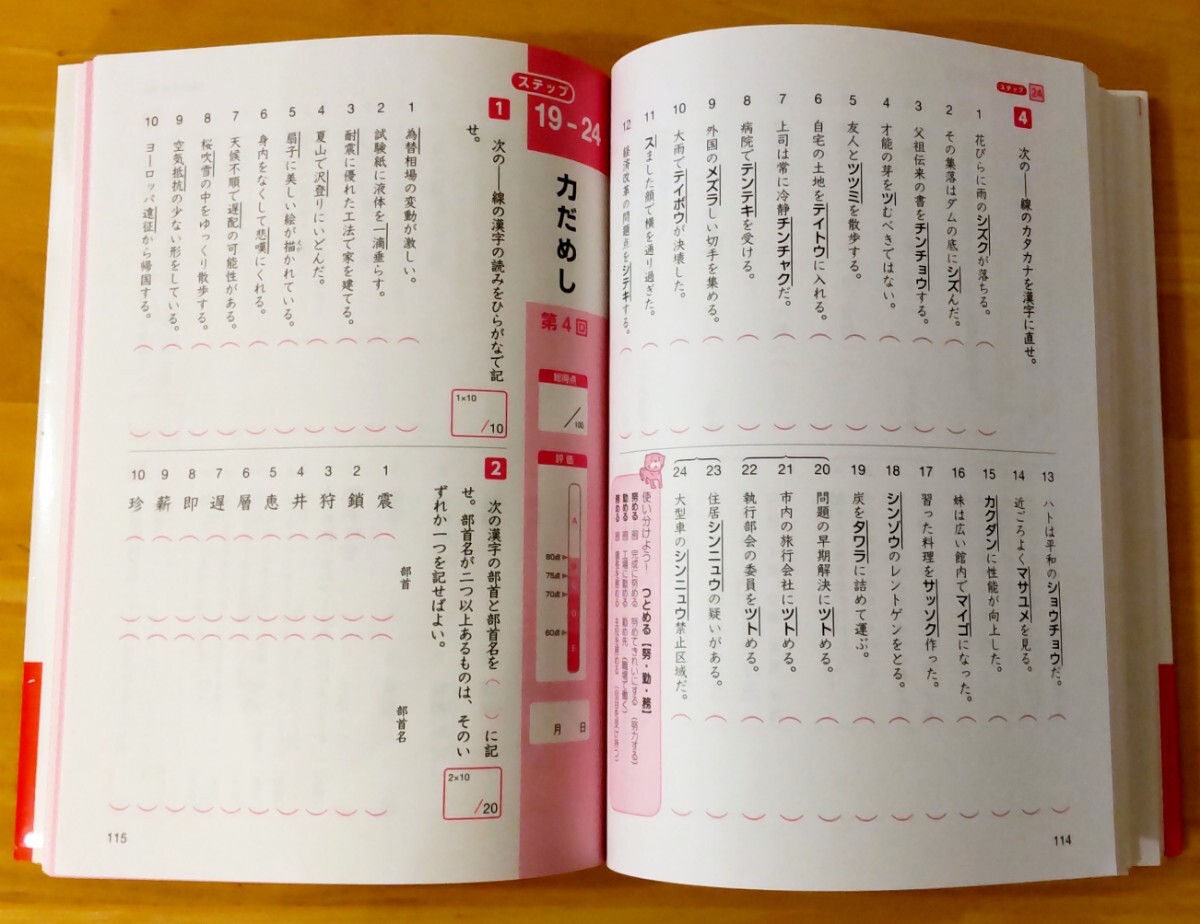 ステップ 24
4 次の――線のカタカナを漢字に直せ。
1 花びらに雨のシズクが落ちる。
2 その集落はダムの底にシズんだ。
3 父祖伝来の書をチンチョウする。
4 才能の芽をツむべきではない。
5 友人とツツミを散歩する。
6 自宅の土地をテイトウに入れる。
7 上司は常に冷静チンチャクだ。
8 病院でテンテキを受ける。
9 外国のメズラしい切手を集める。
10 大雨でテイボウが決壊した。
11 スました顔で横を通り過ぎた。
12 経済改革の問題点をシテキする。
13 ハトは平和のショウチョウだ。
14 近ごろよくマサユメを見る。
15 カクダンに性能が向上した。
16 妹は広い館内でマイゴになった。
17 習った料理をサッソク作った。
18 シンゾウのレントゲンをとる。
19 炭をタワラに詰めて運ぶ。
20 問題の早期解決にツトめる。
21 市内の旅行会社にツトめる。
22 執行部会の委員をツトめる。
23 住居シンニュウの疑いがある。
24 大型車のシンニュウ禁止区域だ。
使い分けよう! つとめる【努・勤・務】
努める 例 完成に努める 努めてきれいにする(努力する)
勤める 例 工場に勤める 勤め先(職場で働く)
務める 例
114
ステップ
19-24
力だめし
第4回
総得点
/100
評価
A
80点▶
75点▶
70点▶
D
60点▶
E
月 日
1 次の――線の漢字の読みをひらがなで記
せ。
1×10
/10
1 為替相場の変動が激しい。
2 試験紙に液体を一滴垂らす。
3 耐震に優れた工法で家を建てる。
4 夏山で沢登りにいどんだ。
5 扇子に美しい絵が描かれている。
6 身内をなくして悲嘆にくれる。
7 天候不順で遅配の可能性がある。
8 桜吹雪の中をゆっくり散歩する。
9 空気抵抗の少ない形をしている。
10 ヨーロッパ遠征から帰国する。
2 次の漢字の部首と部首名を( )に記
せ。部首名が二つ以上あるものは、そのい
ずれか一つを記せばよい。
2×10
/20
部首 部首名
1 震
2 鎖
3 狩
4 井
5 恵
6 層
7 遅
8 即
9 薪
10 珍
115